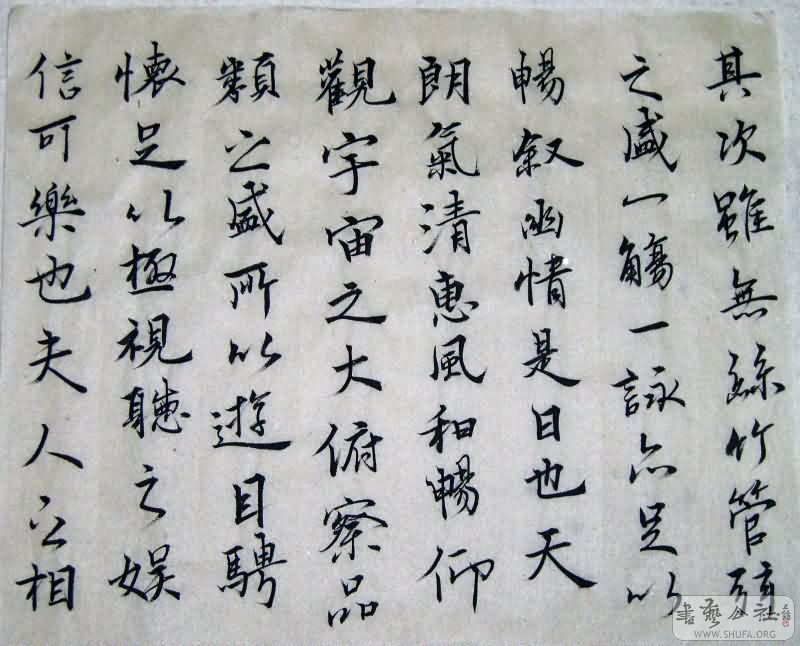 其次雖無絲竹管弦
之盛一觴一詠亦足以
暢叙幽情是日也天
朗氣清惠風和暢仰
觀宇宙之大俯察品
類之盛所以遊目騁
懷足以極視聽之娛
信可樂也夫人之相
書藝公社
WWW.SHUFA.ORG